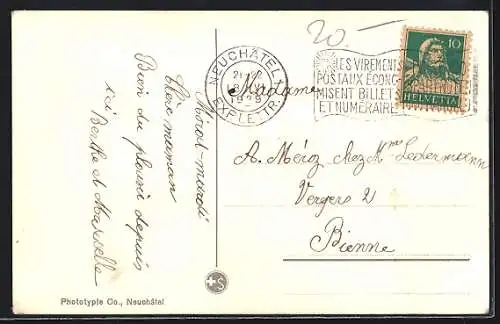 20.-
NEUCHÂTEL 1
1929
EXP. LETTR.
LES VIREMENTS
POSTAUX ÉCONO-
MISENT BILLETS
ET NUMÉRAIRE
10
HELVETIA
Madame
A. Méroz chez Mme Ledermann
Vergers 2
Bienne
mardi
Chère maman
Bien du plaisir depuis
ici Berthe et Marcelle
+S
Phototypie Co., Neuchâtel